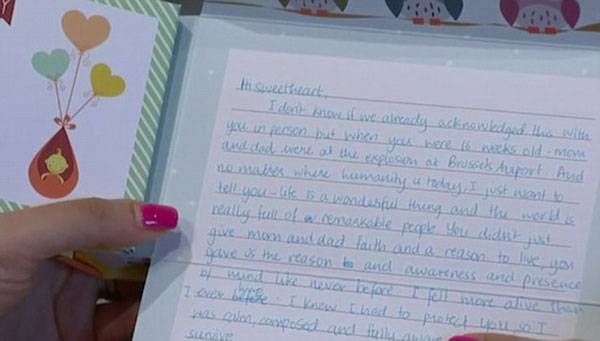 Hi sweetheart,
I don't know if we already acknowledged this with
you in person but when you were 16 weeks old - mom
and dad were at the explosion at Brussels Airport. And
no matter where humanity is today, I just want to
tell you - life is a wonderful thing and the world is
really full of remarkable people You didn't just
give mom and dad faith and a reason to live, you
gave us the reason and awareness and presence
of mind like never before I felt more alive than
I ever have. I knew I had to protect you, so I
was calm, composed and fully aware
survive